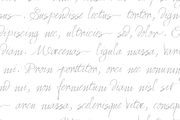 . Suspendisse lectus tortor, digni
dipiscing nec, ultricies sed, dolor. C
diam. Maecenas ligula massa, varius
mi. Proin porttitor, orci nec nonumm
nd mi, non fermentum diam nisl sit
arcu massa, scelerisque vitae, conseq